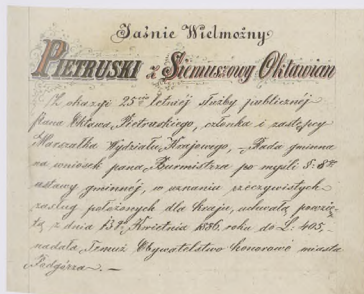 Jaśnie Wielmożny
PIETRUSKI z Siemuszowy Oktawian
Z okazyi 25cio letniéj służby publicznéj
Pana Oktawa Pietruskiego, członka i zastępcy
Marszałka Wydziału Krajowego, Rada gminna
na wniosek pana Burmistrza po myśli §: 8go
ustawy gminnéj, w uznaniu rzeczywistych
zasług położonych dla kraju, uchwałą powzię
tą z dnia 13. Kwietnia 1886. roku do L: 405,
nadała Temuż Obywatelstwo honorowe miasta
Podgórza. —